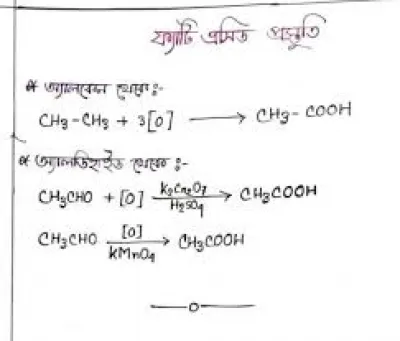 ফ্যাটি এসিড প্রস্তুতি
* অ্যালকেন থেকে :-
CH3-CH3 + 3[O] ⟶ CH3-COOH
* অ্যালডিহাইড থেকে :-
CH3CHO + [O] K2Cr2O7/H2SO4 → CH3COOH
CH3CHO [O]/KMnO4 → CH3COOH